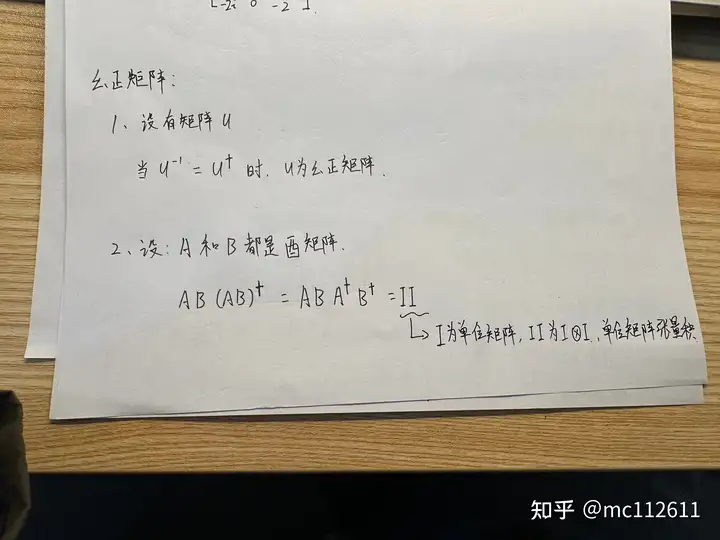 [-2i 0 -2].
幺正矩阵:
1、设有矩阵 U
当 U⁻¹ = U† 时. U为幺正矩阵.
2、设: A 和 B 都是酉矩阵.
AB (AB)† = AB A† B† = II
↳ I为单位矩阵, II 为 I⊗I. 单位矩阵张量积.
知乎 @mc112611